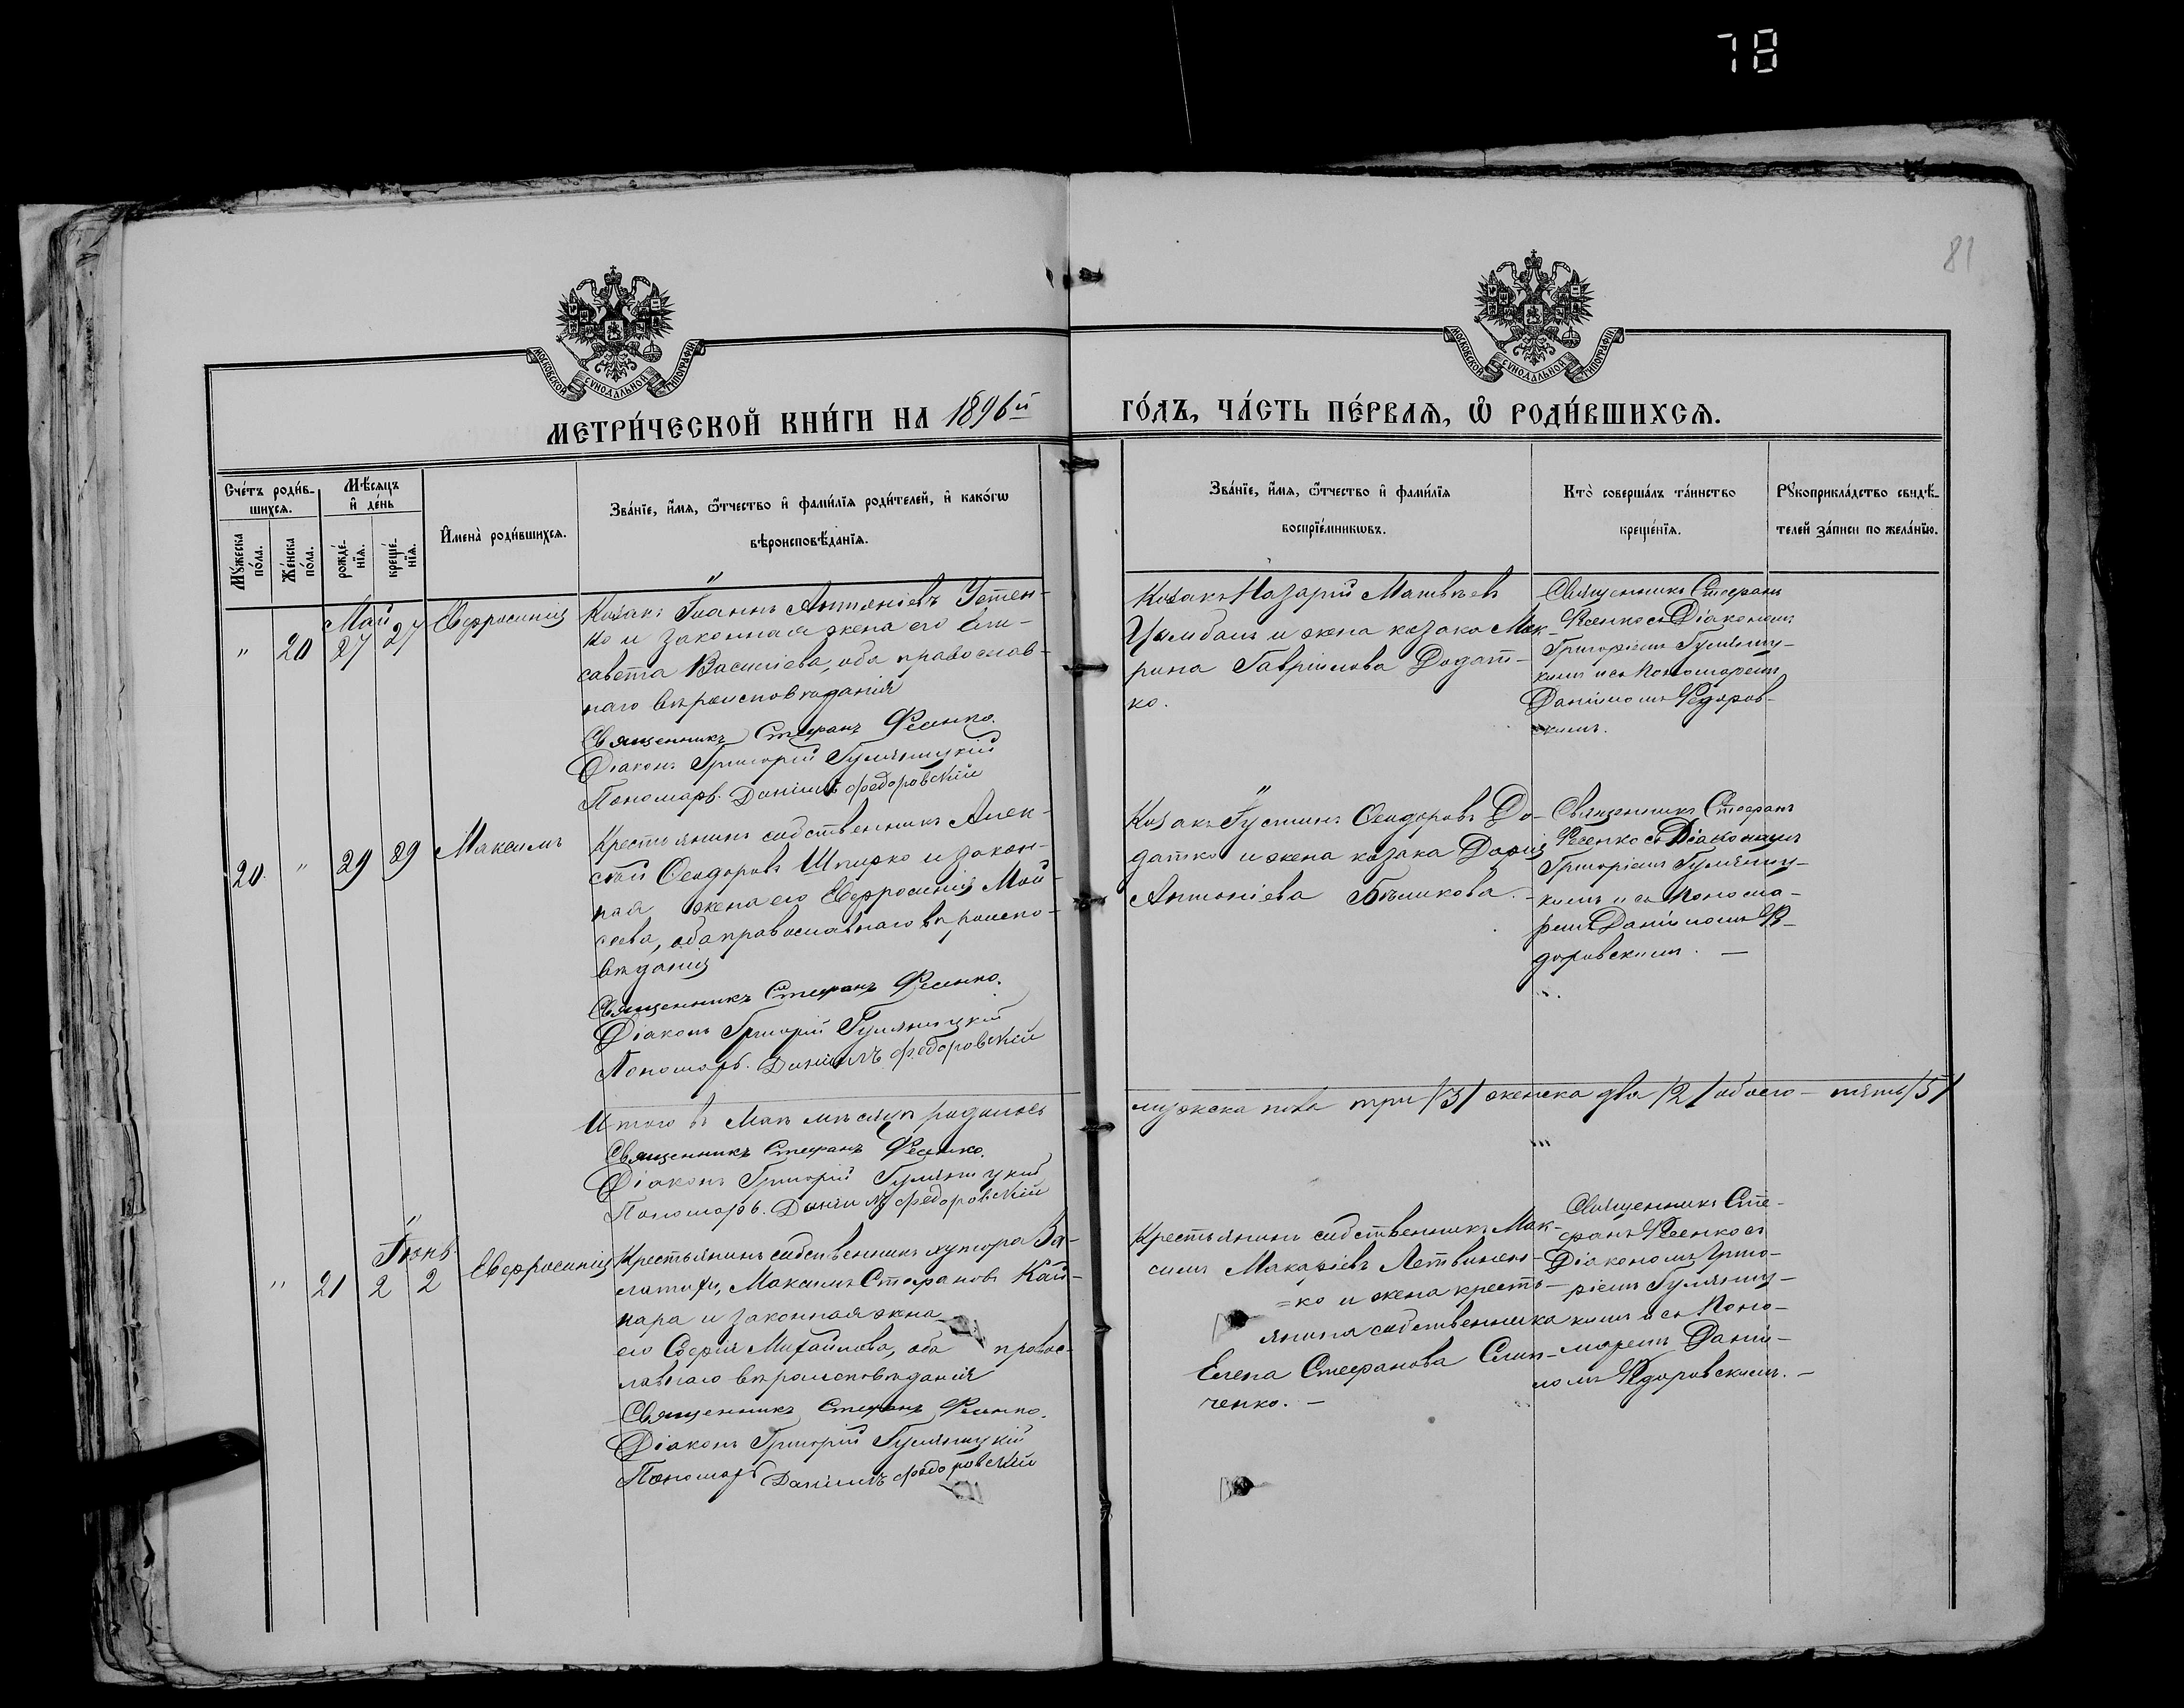 78
81
МОСКОВСКОЙ СУНОДАЛЬНОЙ ТИПОГРАФІИ
МОСКОВСКОЙ СУНОДАЛЬНОЙ ТИПОГРАФІИ
МЕТРИ́ЧЕСКОЙ КНИ́ГИ НА 1896й
ГО́ДЪ, ЧА́СТЬ ПЕ́РВАЯ, Ѡ҆ РОДИ́ВШИХСЯ.
Сче́тъ роди́в-
шихся.
Мꙋ́жеска по́ла.
Же́нска по́ла.
Мѣ́сяцъ
и҆ де́нь
рожде́-
нїя.
креще́-
нїя.
И҆мена̀ роди́вшихся.
Зва́нїе, и҆́мя, ѻ҆́тчество и҆ фами́лїя роди́телей, и҆ како́гѡ
вѣроисповѣ́данїя.
Зва́нїе, и҆́мя, ѻ҆́тчество и҆ фами́лїя
воспрїе́мникѡвъ.
Кто̀ соверша́лъ та́инство
креще́нїя.
Рꙋкоприкла́дство свидѣ́-
телей за́писи по жела́нїю.
Май
" 20 27 27 Евфросинія
Козакъ Іоаннъ Антоніевъ Устен-
ко и законная жена его Ели-
савета Василіева, оба православ-
наго вѣроисповѣданія
Священникъ Стефанъ Фесенко.
Діаконъ Григорій Гуляницкій
Пономарь Даніилъ Федоровскій
Козакъ Назарій Матвѣевъ
Цымбалъ и жена козака Мак-
рина Гавріилова Додат-
ко.
Священникъ Стефанъ
Фесенко съ Діакономъ
Григоріемъ Гуляниц-
кимъ и съ Пономаремъ
Даніиломъ Федоров-
скимъ.
20 " 29 29 Максимъ
Крестьянинъ собственникъ Алек-
сѣй Ѳеодоровъ Шпирко и закон-
ная жена его Евфросинія Мой-
сеева, оба православнаго вѣроиспо-
вѣданія
Священникъ Стефанъ Фесенко.
Діаконъ Григорій Гуляницкій
Пономарь Даніилъ Федоровскій
Козакъ Іустинъ Ѳеодоровъ До-
датко и жена козака Дарія
Антоніева Бѣликова.
Священникъ Стефанъ
Фесенко съ Діакономъ
Григоріемъ Гуляниц-
кимъ и съ Понома-
ремъ Даніиломъ Фе-
доровскимъ. —
Итого въ Маѣ мѣсяцѣ родилось
мужеска пола три /3/ женска два /2/ обоего - пять /5/
Священникъ Стефанъ Фесенко.
Діаконъ Григорій Гуляницкій
Пономарь Даніилъ Федоровскій
Іюнь
" 21 2 2 Евфросинія
Крестьянинъ собственникъ хутора
Максимъ Стефановъ
и законная жена
его Софія Михайлова, оба правос-
лавнаго вѣроисповѣданія
Священникъ Стефанъ Фесенко.
Діаконъ Григорій Гуляницкій
Пономарь Даніилъ Федоровскій
Крестьянинъ собственникъ Мак-
симъ Макаріевъ Летвинен-
=ко и жена кресть-
янина собственника
Елена Стефанова Слип-
ченко. —
Священникъ Сте-
фанъ Фесенко съ
Діакономъ Григо-
ріемъ Гуляниц-
кимъ и съ Поно-
маремъ Даніи-
ломъ Федоровскимъ. —